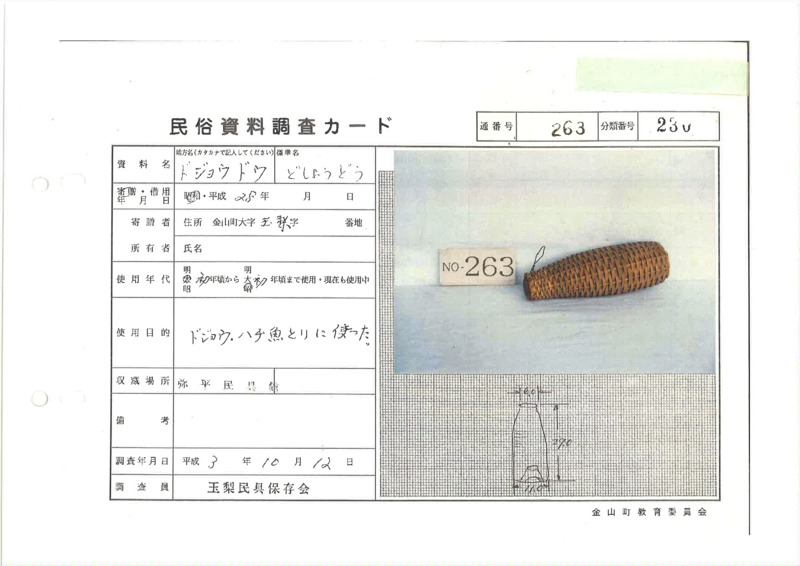 民俗資料調査カード
通番号 263 分類番号 230
資料名
地方名(カタカナで記入してください) 標準名
ドジョウドウ どじょうどう
寄贈・借用年月日 昭和・平成 28年 月 日
寄贈者 住所 金山町大字玉梨字 番地
所有者 氏名
使用年代 明大昭初年頃から 明大昭初年頃まで使用・現在も使用中
使用目的 ドジョウ・ハチ魚とりに使った。
収蔵場所 弥平民具館
備考
調査年月日 平成 3 年 10 月 12 日
調査員 玉梨民具保存会
NO-263
6.0
11.0
金山町教育委員会